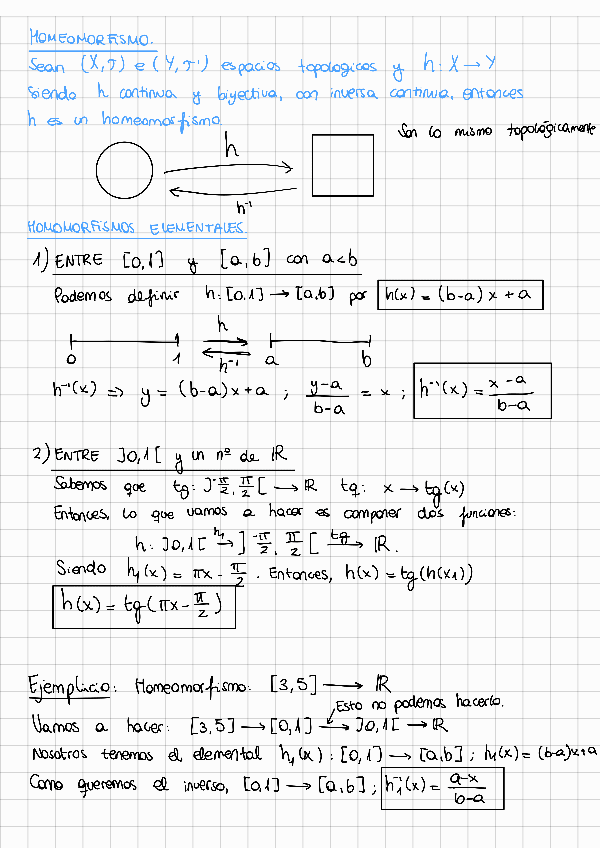 HOMEOMORFISMO.
Sean (X,τ) e (Y,τ') espacios topologicos y h: X → Y
siendo h continua y biyectiva, con inversa continua, entonces
h es un homeomorfismo.
Son lo mismo topológicamente
h
h⁻¹
HOMOMORFISMOS ELEMENTALES.
1) ENTRE [0,1] y [a,b] con a<b
Podemos definir h: [0,1] → [a,b] por h(x) = (b-a)x + a
h
0 1 h⁻¹ a b
h⁻¹(x) => y = (b-a)x+a ; (y-a)/(b-a) = x ; h⁻¹(x) = (x-a)/(b-a)
2) ENTRE ]0,1[ y un nº de ℝ
Sabemos que tg: ]-π/2, π/2[ → ℝ tg: x → tg(x)
Entonces, lo que vamos a hacer es componer dos funciones:
h: ]0,1[ h₁→ ]-π/2, π/2[ tg→ ℝ.
Siendo h₁(x) = πx - π/2. Entonces, h(x) = tg(h(x₁))
h(x) = tg(πx - π/2)
Ejemplicio: Homeomorfismo: [3,5] → ℝ
Esto no podemos hacerlo.
Vamos a hacer: [3,5] → [0,1] → ]0,1[ → ℝ
Nosotros tenemos el elemental h₁(x): [0,1] → [a,b] ; h₁(x) = (b-a)x+a
Como queremos el inverso, [0,1] → [a,b] ; h₁⁻¹(x) = (a-x)/(b-a)